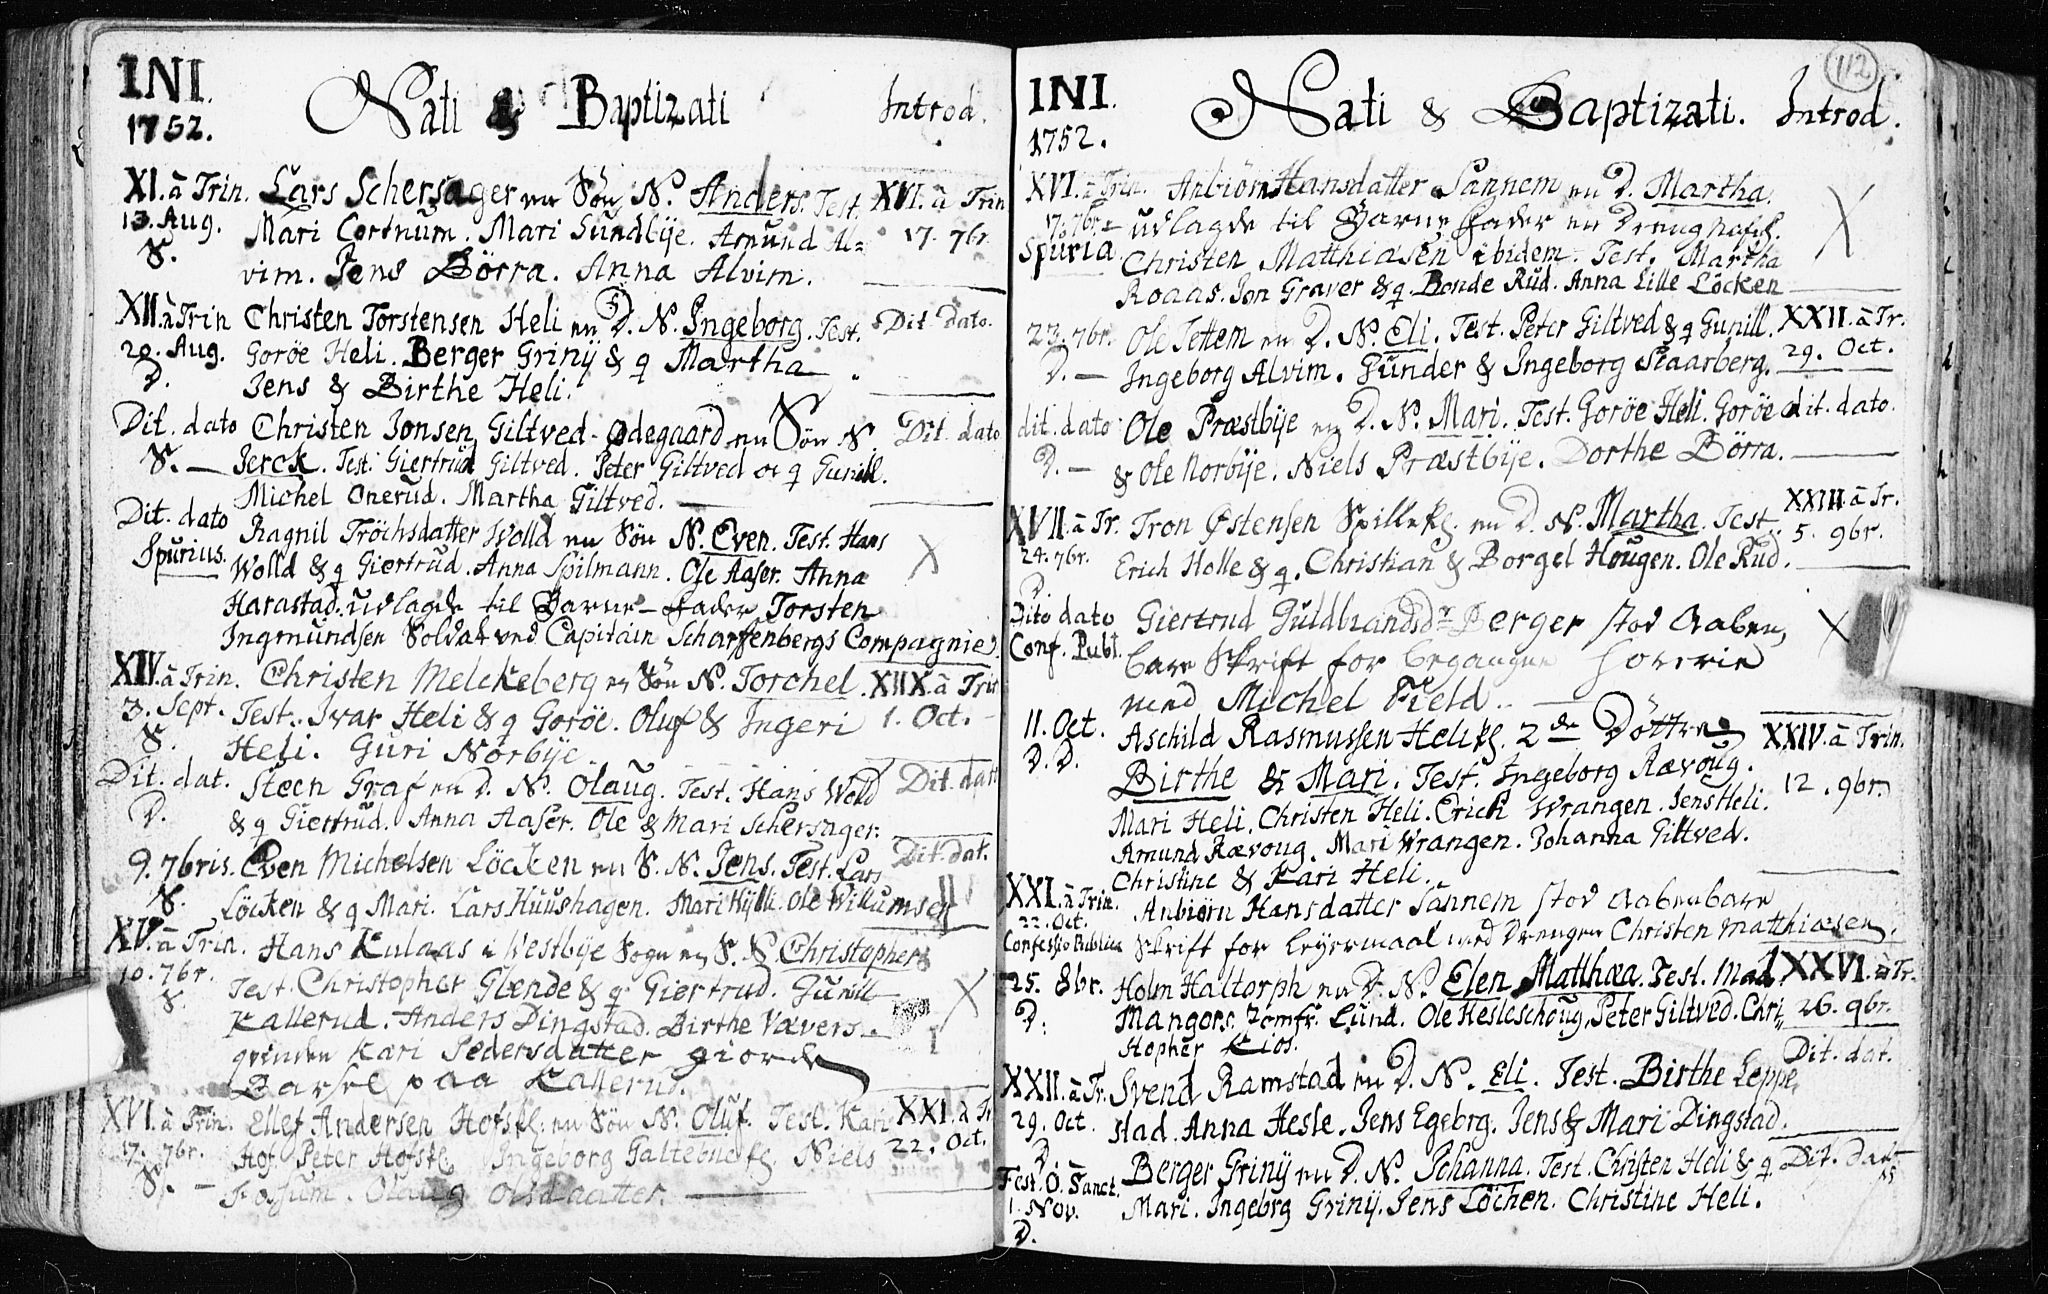 INI. Nati & Baptizati Introd.
1752.
XI. à Trin. Lars Schersager en Søn N. Anders. Test. XVI. à Trin
13. Aug. Mari Cortnum. Mari Sundbije. Amund Al= 17. 7br.
S. vim. Jens Börra. Anna Alvim.
XII. à Trin Christen Torstensen Heli en D. N. Ingeborg. Test. Dit. dato.
20. Aug. Goröe Heli. Berger Grinÿ & q Martha
D. Jens & Birthe Heli.
Dit. dato Christen Jonsen Giltved-Ødegaard en Søn N Dit. dato
S. — Jerck. Test. Giertrud Giltved. Peter Giltved & q Gunill.
Michel Onerud. Martha Giltved.
Dit. dato Ragnil Tröchsdatter Wolld en Søn N. Even. Test. Hans X
Spurius. Wolld & q Giertrud. Anna Spilmann. Ole Aaser. Anna
Harastad. udlagde til Barne-Fader Torsten
Ingmundsen Soldat ved Capitain Scharffenbergs Compagnie.
XIV. à Trin. Christen Melckeberg en Søn N. Torchel. XIIX. à Trin
3. Sept. Test. Ivar Heli & q Goröe. Oluf & Ingeri 1. Oct.
S. Heli. Guri Norbije.
Dit. dat. Steen Graf en D. N. Olaug. Test. Hans Wolld Dit. dat
D. & q Giertrud. Anna Aaser. Ole & Mari Schersager.
9. 7bris. Even Michelsen Löcken en S. N. Jens. Test. Lars Dit. dat.
S. Löcken & q Mari. Lars Huushagen. Mari Hylli. Ole Willumsen
XV. à Trin. Hans Kulaas i Westbije Sogn en S. N Christopher
10. 7br. Test. Christopher Glende & q Giertrud. Gunill X
S. Kallerud. Anders Dingstad. Birthe Vævers-
qvinden Kari Pedersdatter giorde
Barsel paa Kallerud.
XVI. à Trin. Ellef Andersen Hofsk. en Søn N. Oluf. Test. Kari XXI. à Tr
17. 7br. Hof. Peter Hofsk. Ingeborg Galtebÿe Niels 22. Oct.
S. — Fossum. Olaug Olsdaatter.
112
INI. Nati & Baptizati. Introd.
1752.
XVI. à Trin. Anbiörn Hansdatter Sannem en D. Martha. X
17. 7br. udlagde til Barne Fader en Dreng
Spuria. Christen Matthiasen ibidem. Test. Martha
Roaas. Jon Graver & q. Bonde Rud. Anna Lille Löcken
23. 7br. Ole Tettem en D. N. Eli. Test. Peter Giltved & q Gunill. XXII. à Tr.
D. — Ingeborg Alvim. Gunder & Ingeborg Staarberg. 29. Oct.
dit. dato Ole Præstbije en D. N. Mari. Test. Goröe Heli. Goröe dit. dato.
D. — & Ole Norbije. Niels Præstbije. Dorthe Börra.
XVII. à Tr. Tron Østensen Spillek. en D. N. Martha. Test. XXIII à Tr.
24. 7br. Erich Holle & q. Christian & Borgel Hougen. Ole Rud. 5. 9br.
D
Dito dato Giertrud Guldbrandsdr Berger stod Aaben, X
Conf. Publ. bare Skrift for begangen Horerie
med Michel Field.
11. Oct. Aschild Rasmussen Helik. 2de Døttre XXIV. à Trin.
D. D. Birthe & Mari. Test. Ingeborg Rævoug. 12. 9br.
Mari Heli. Christen Heli. Erich Wrangen. Jens Heli.
Amund Rævoug. Mari Wrangen. Johanna Giltved.
Christine & Kari Heli.
XXI. à Trin. Anbiörn Hansdatter Sannem stod Aabenbare
22. Oct.
Confessio Publica Skrift for Leyermaal med Drengen Christen Matthiasen.
25. 8br. Holm Haltorph en D. N. Elen Matthæa. Test. Mad. XXVI. à Tr.
D. Mangors. Jomfr. Lund. Ole Hesleschoug. Peter Giltved. Chri= 26. 9br.
stopher Kios.
XXII. à Tr. Svend Ramstad en D. N. Eli. Test. Birthe Leppe, Dit. dat.
29. Oct. stad. Anna Hesle. Jens Egebrg. Jens & Mari Dingstad.
D
Fest. O. Sanct. Berger Grinÿ en D. N. Johanna. Test. Christen Heli & q Dit. dat.
1. Nov. Mari. Ingebrg Grinÿ. Jens Löchen. Christine Heli.
D.